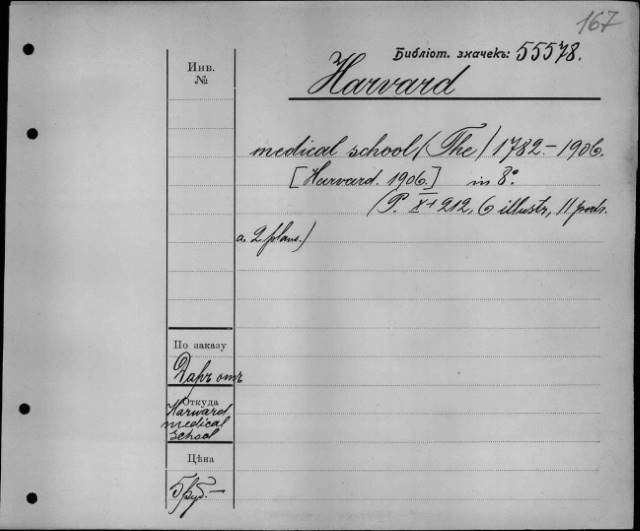 167
Библіот. значекъ: 55578.
Инв.
№
Harvard
medical school (The) 1782-1906.
[Harvard. 1906.] in 8°.
(P. XI+212, 6 illustr., 11 portr.
a. 2 plans.)
По заказу
Даръ отъ
Откуда
Harward
medical
school
Цѣна
5 руб.-